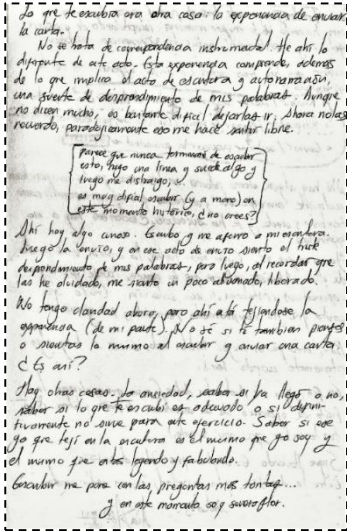 Lo que te escribía era otra cosa: la experiencia de enviar
la carta.
No se trata de correspondencia instrumental. He ahí lo
diferente de este acto. Esta experiencia comprende, además
de lo que implica el acto de escritura y autorización,
una suerte de desprendimiento de mis palabras. Aunque
no dicen mucho, es bastante difícil dejarlas ir. Ahora no las
recuerdo, paradójicamente eso me hace sentir libre.
Parece que nunca terminaré de escribir
esto, hago una línea y sucede algo y
luego me distraigo, y..
es muy difícil escribir (y a mano) en
este momento histórico, ¿no crees?
Ahí hay algo curioso. Escribo y me aferro a mi escritura.
Luego la envío, y en ese acto de envío siento el
desprendimiento de mis palabras, pero luego, al recordar que
las he olvidado, me siento un poco aliviado, liberado.
No tengo claridad ahora, pero ahí está tejiéndose la
experiencia (de mi parte). No sé si tú también piensas
o sientes lo mismo al escribir y enviar una carta.
¿Es así?
Hay otras cosas. La ansiedad, saber si ha llegado o no,
saber si lo que te escribí es adecuado o si defini-
tivamente no sirve para este ejercicio. Saber si ese
yo que tejí en la escritura es el mismo que yo soy y
el mismo que estás leyendo y fabulando.
Escribir me pone con las preguntas más tontas...
y en este momento soy